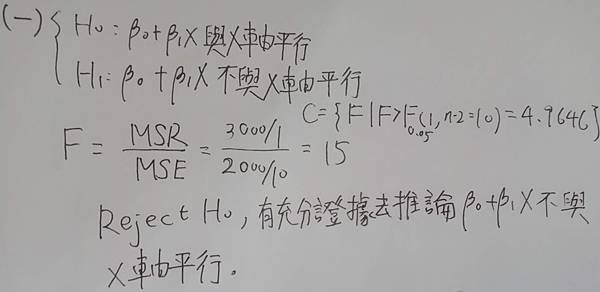 (一) { H₀: β₀+β₁X 與X軸平行
H₁: β₀+β₁X 不與X軸平行
C={F|F>F₀.₀₅(1, n-2=10)=4.9646}
F = MSR/MSE = (3000/1)/(2000/10) = 15
Reject H₀, 有充分證據去推論 β₀+β₁X 不與
X軸平行。